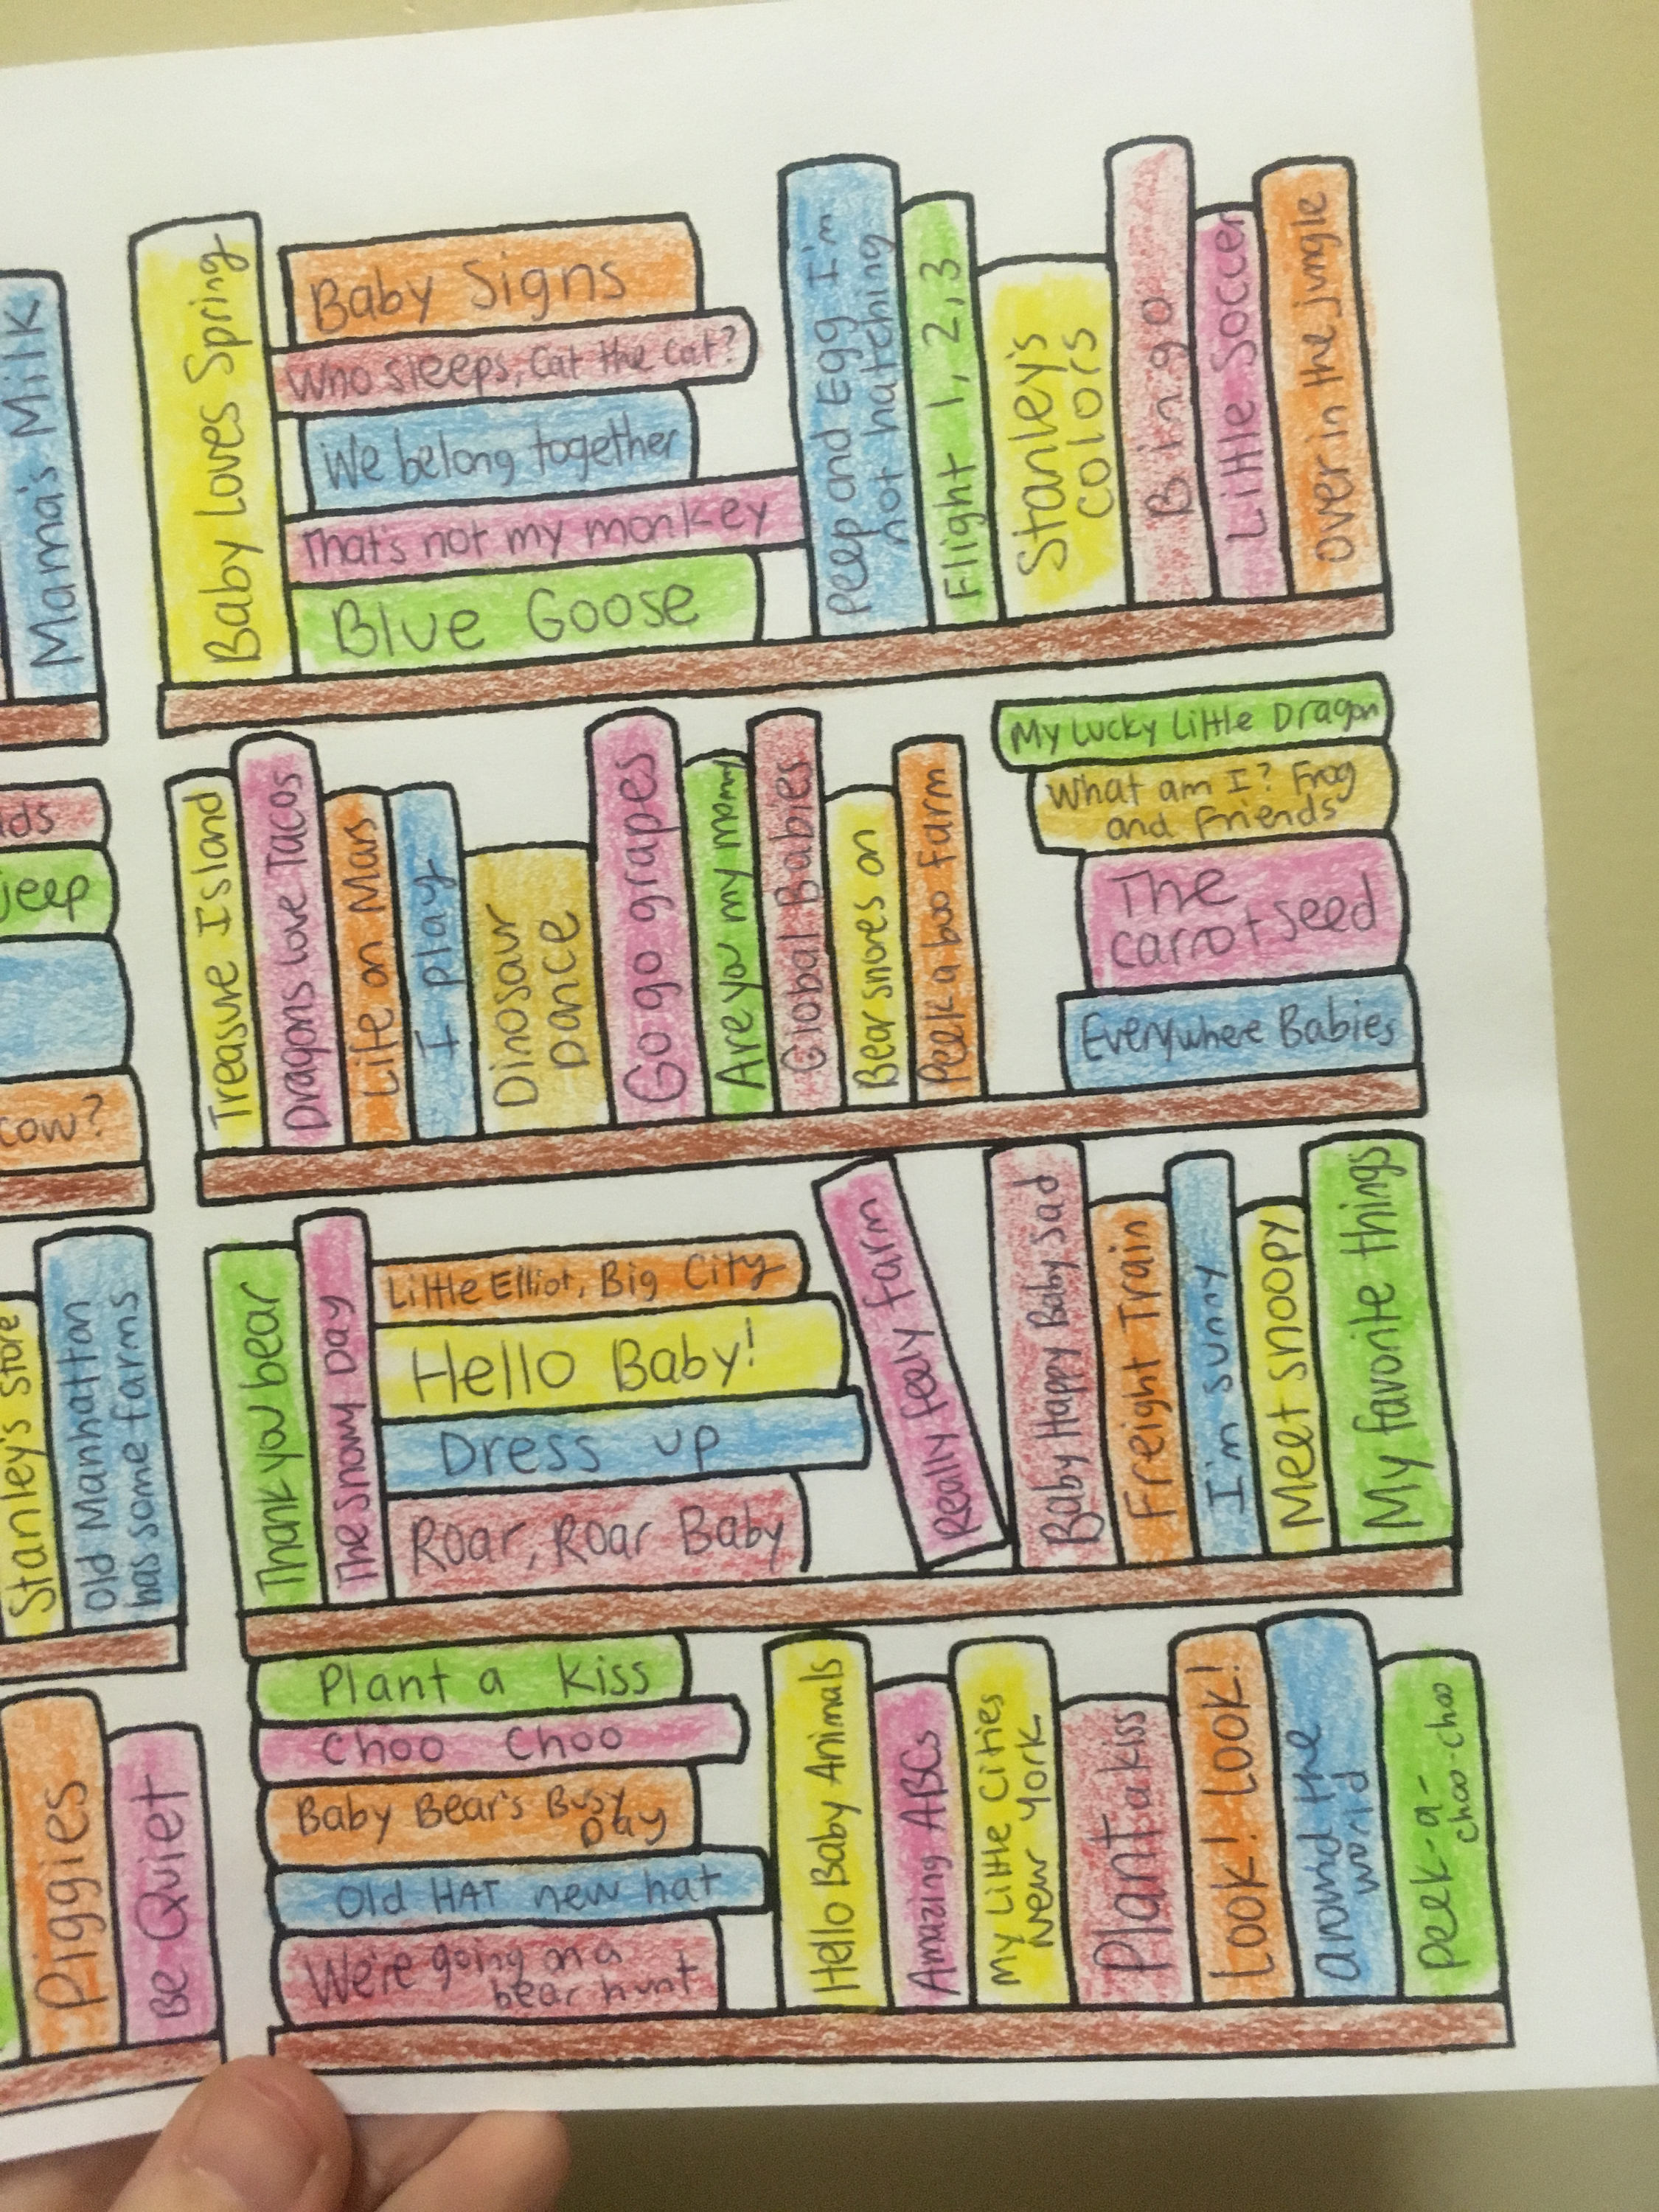 Mama's Milk
jeep
cow?
Stanley's Store
Old Manhattan
has some farms
Piggies
Be Quiet
Baby Loves Spring
Baby Signs
Who sleeps, Cat the Cat?
We belong together
That's not my monkey
Blue Goose
Peep and Egg I'm
not hatching
Flight 1, 2, 3
Stanley's
colors
Bingo
Little Soccer
Over in the jungle
Treasure Island
Dragons Love Tacos
Life on Mars
I play
Dinosaur
Dance
Go go grapes
Are you my momy
Global Babies
Bear snores on
Peek a boo Farm
My Lucky Little Dragon
What am I? Frog
and Friends
The
carrot seed
Everywhere Babies
Thank you bear
The Snowy Day
Little Elliot, Big City
Hello Baby!
Dress up
Roar, Roar Baby
Really feely farm
Baby Happy Baby Sad
Freight Train
I'm sunny
Meet snoopy
My favorite things
Plant a Kiss
Choo Choo
Baby Bear's Busy
Day
Old HAT new hat
We're going on a
bear hunt
Hello Baby Animals
Amazing ABCs
My Little Cities
New York
Plant a kiss
Look! Look!
around the
world
peek-a-
choo-choo